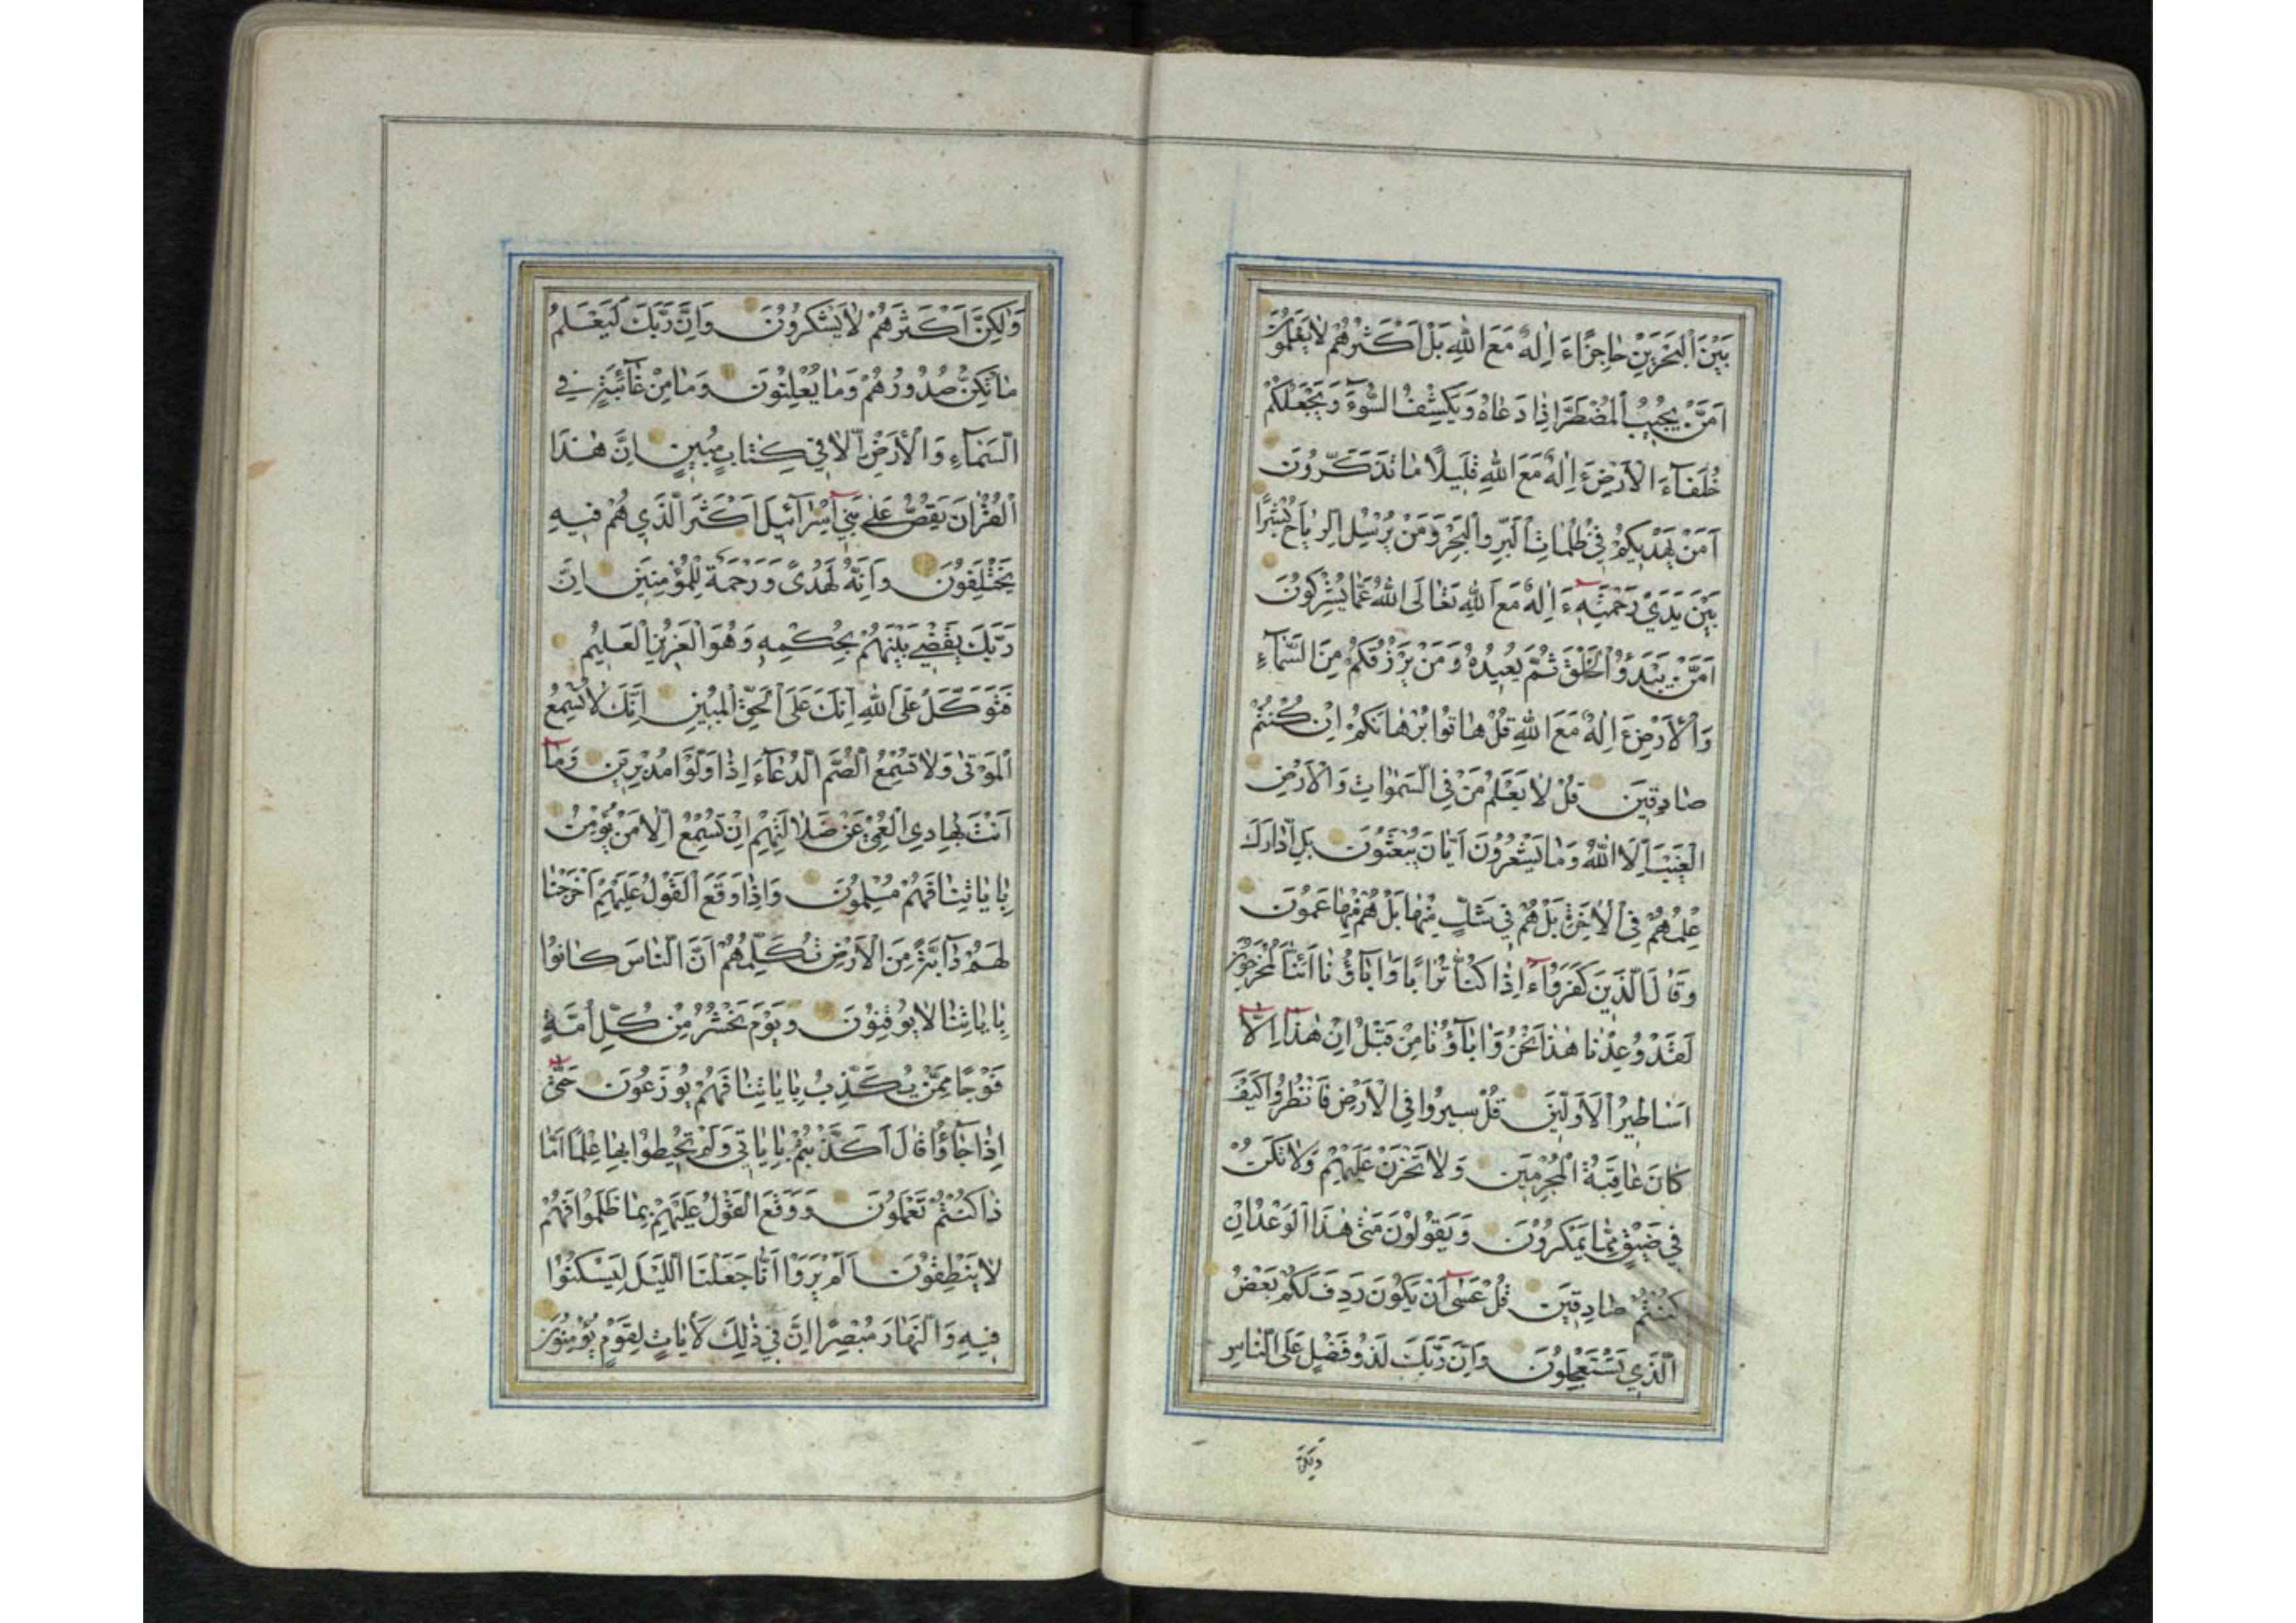 بَيْنَ الْبَحْرَيْنِ حَاجِزًا ءَاِلٰهٌ مَعَ اللّٰهِ بَلْ اَكْثَرُهُمْ لَا يَعْلَمُونَ
اَمَّنْ يُجِيبُ الْمُضْطَرَّ اِذَا دَعَاهُ وَيَكْشِفُ السُّوٓءَ وَيَجْعَلُكُمْ
خُلَفَآءَ الْاَرْضِ ءَاِلٰهٌ مَعَ اللّٰهِ قَلِيلًا مَا تَذَكَّرُونَ
اَمَّنْ يَهْدِيكُمْ فِي ظُلُمَاتِ الْبَرِّ وَالْبَحْرِ وَمَنْ يُرْسِلُ الرِّيَاحَ بُشْرًا
بَيْنَ يَدَيْ رَحْمَتِهِ ءَاِلٰهٌ مَعَ اللّٰهِ تَعَالَى اللّٰهُ عَمَّا يُشْرِكُونَ
اَمَّنْ يَبْدَؤُا الْخَلْقَ ثُمَّ يُعِيدُهُ وَمَنْ يَرْزُقُكُمْ مِنَ السَّمَآءِ
وَالْاَرْضِ ءَاِلٰهٌ مَعَ اللّٰهِ قُلْ هَاتُوا بُرْهَانَكُمْ اِنْ كُنْتُمْ
صَادِقِينَ قُلْ لَا يَعْلَمُ مَنْ فِي السَّمٰوَاتِ وَالْاَرْضِ
الْغَيْبَ اِلَّا اللّٰهُ وَمَا يَشْعُرُونَ اَيَّانَ يُبْعَثُونَ بَلِ ادَّارَكَ
عِلْمُهُمْ فِي الْاٰخِرَةِ بَلْ هُمْ فِي شَكٍّ مِنْهَا بَلْ هُمْ مِنْهَا عَمُونَ
وَقَالَ الَّذِينَ كَفَرُوٓا ءَاِذَا كُنَّا تُرَابًا وَاٰبَآؤُنَا اَئِنَّا لَمُخْرَجُونَ
لَقَدْ وُعِدْنَا هٰذَا نَحْنُ وَاٰبَآؤُنَا مِنْ قَبْلُ اِنْ هٰذَآ اِلَّآ
اَسَاطِيرُ الْاَوَّلِينَ قُلْ سِيرُوا فِي الْاَرْضِ فَانْظُرُوا كَيْفَ
كَانَ عَاقِبَةُ الْمُجْرِمِينَ وَلَا تَحْزَنْ عَلَيْهِمْ وَلَا تَكُنْ
فِي ضَيْقٍ مِمَّا يَمْكُرُونَ وَيَقُولُونَ مَتٰى هٰذَا الْوَعْدُ اِنْ
كُنْتُمْ صَادِقِينَ قُلْ عَسٰىٓ اَنْ يَكُونَ رَدِفَ لَكُمْ بَعْضُ
الَّذِي تَسْتَعْجِلُونَ وَاِنَّ رَبَّكَ لَذُو فَضْلٍ عَلَى النَّاسِ
وَلٰكِنَّ
وَلٰكِنَّ اَكْثَرَهُمْ لَا يَشْكُرُونَ وَاِنَّ رَبَّكَ لَيَعْلَمُ
مَا تُكِنُّ صُدُورُهُمْ وَمَا يُعْلِنُونَ وَمَا مِنْ غَآئِبَةٍ فِي
السَّمَآءِ وَالْاَرْضِ اِلَّا فِي كِتَابٍ مُبِينٍ اِنَّ هٰذَا
الْقُرْاٰنَ يَقُصُّ عَلٰى بَنِيٓ اِسْرَآئِيلَ اَكْثَرَ الَّذِي هُمْ فِيهِ
يَخْتَلِفُونَ وَاِنَّهُ لَهُدًى وَرَحْمَةٌ لِلْمُؤْمِنِينَ اِنَّ
رَبَّكَ يَقْضِي بَيْنَهُمْ بِحُكْمِهِ وَهُوَ الْعَزِيزُ الْعَلِيمُ
فَتَوَكَّلْ عَلَى اللّٰهِ اِنَّكَ عَلَى الْحَقِّ الْمُبِينِ اِنَّكَ لَا تُسْمِعُ
الْمَوْتٰى وَلَا تُسْمِعُ الصُّمَّ الدُّعَآءَ اِذَا وَلَّوْا مُدْبِرِينَ وَمَآ
اَنْتَ بِهَادِي الْعُمْيِ عَنْ ضَلَالَتِهِمْ اِنْ تُسْمِعُ اِلَّا مَنْ يُؤْمِنُ
بِاٰيَاتِنَا فَهُمْ مُسْلِمُونَ وَاِذَا وَقَعَ الْقَوْلُ عَلَيْهِمْ اَخْرَجْنَا
لَهُمْ دَآبَّةً مِنَ الْاَرْضِ تُكَلِّمُهُمْ اَنَّ النَّاسَ كَانُوا
بِاٰيَاتِنَا لَا يُوقِنُونَ وَيَوْمَ نَحْشُرُ مِنْ كُلِّ اُمَّةٍ
فَوْجًا مِمَّنْ يُكَذِّبُ بِاٰيَاتِنَا فَهُمْ يُوزَعُونَ حَتّٰىٓ
اِذَا جَآؤُا قَالَ اَكَذَّبْتُمْ بِاٰيَاتِي وَلَمْ تُحِيطُوا بِهَا عِلْمًا اَمَّا
ذَا كُنْتُمْ تَعْمَلُونَ وَوَقَعَ الْقَوْلُ عَلَيْهِمْ بِمَا ظَلَمُوا فَهُمْ
لَا يَنْطِقُونَ اَلَمْ يَرَوْا اَنَّا جَعَلْنَا اللَّيْلَ لِيَسْكُنُوا
فِيهِ وَالنَّهَارَ مُبْصِرًا اِنَّ فِي ذٰلِكَ لَاٰيَاتٍ لِقَوْمٍ يُؤْمِنُونَ